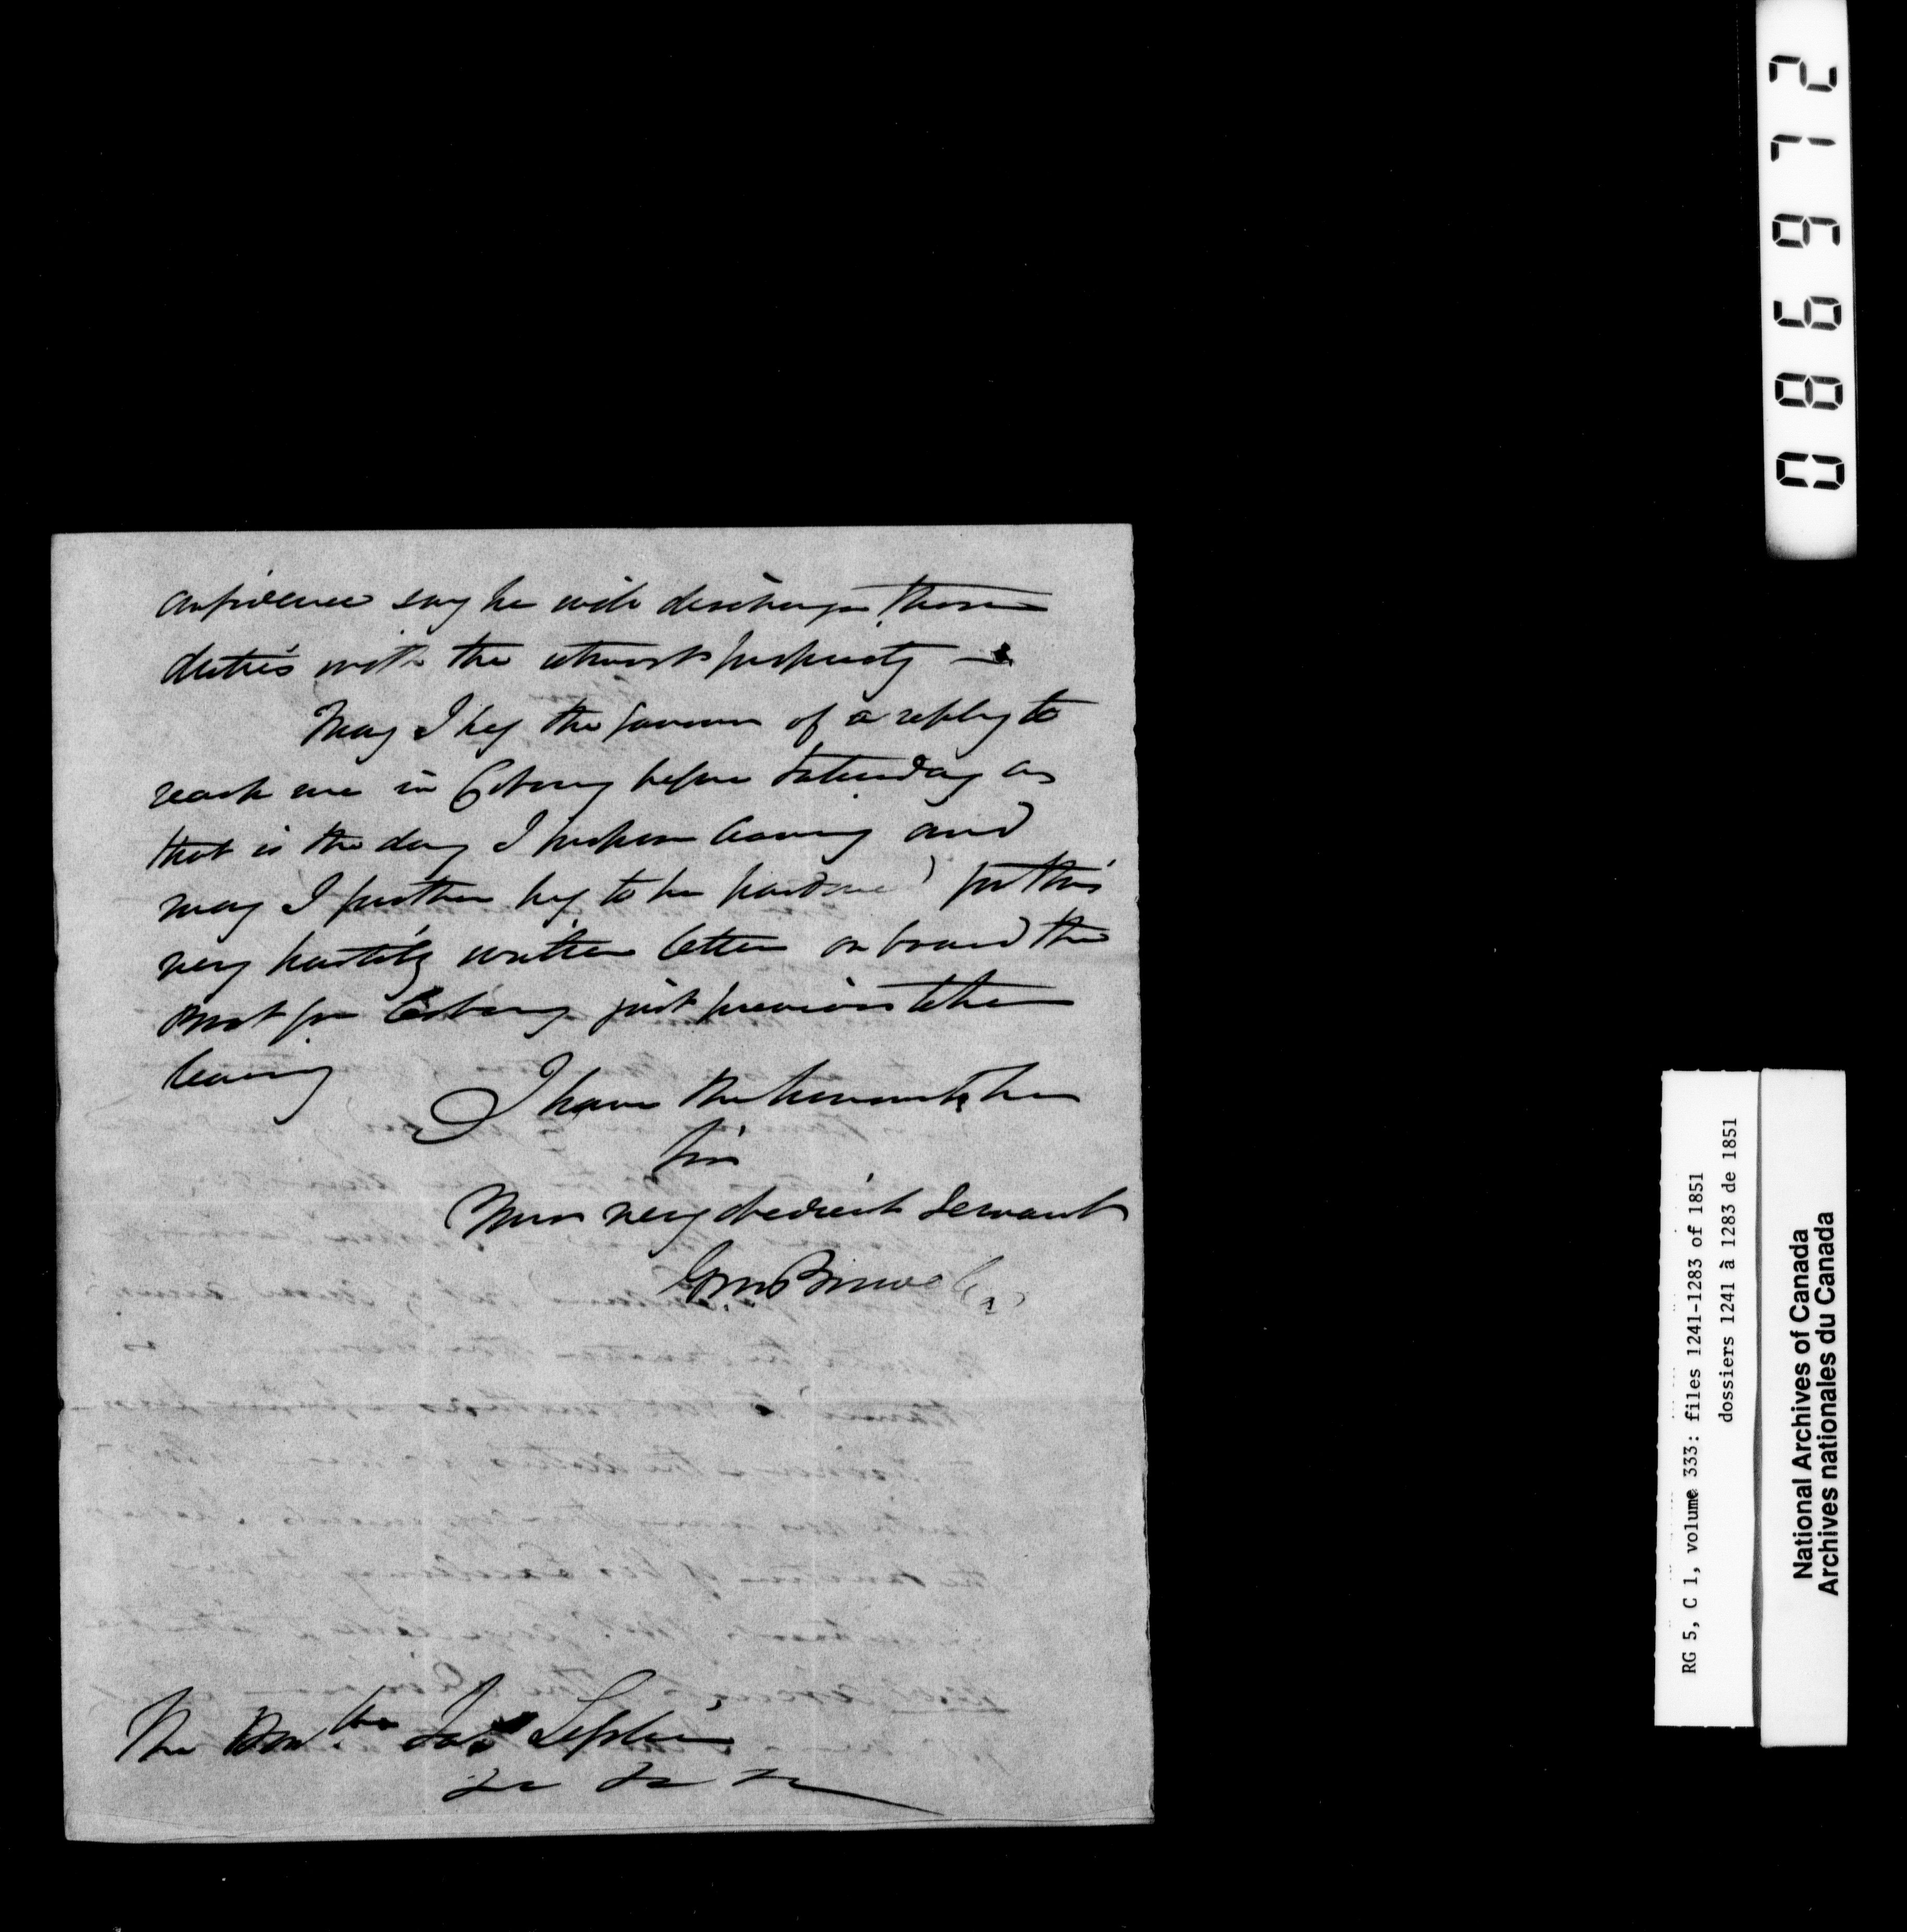 confidence say he will discharge those
duties with the utmost propriety —
May I beg the favour of a reply to
reach me in Cobourg before Saturday as
that is the day I propose leaving and
may I further beg to be pardoned for this
very hastily written letter on board the
Boat for Cobourg just previous to her
leaving
I have the honour to be
Sir
Your very obedient Servant
The Honble Jas Leslie
&c &c &c
086972
RG 5, C 1, volume 333: files 1241-1283 of 1851
dossiers 1241 à 1283 de 1851
National Archives of Canada
Archives nationales du Canada